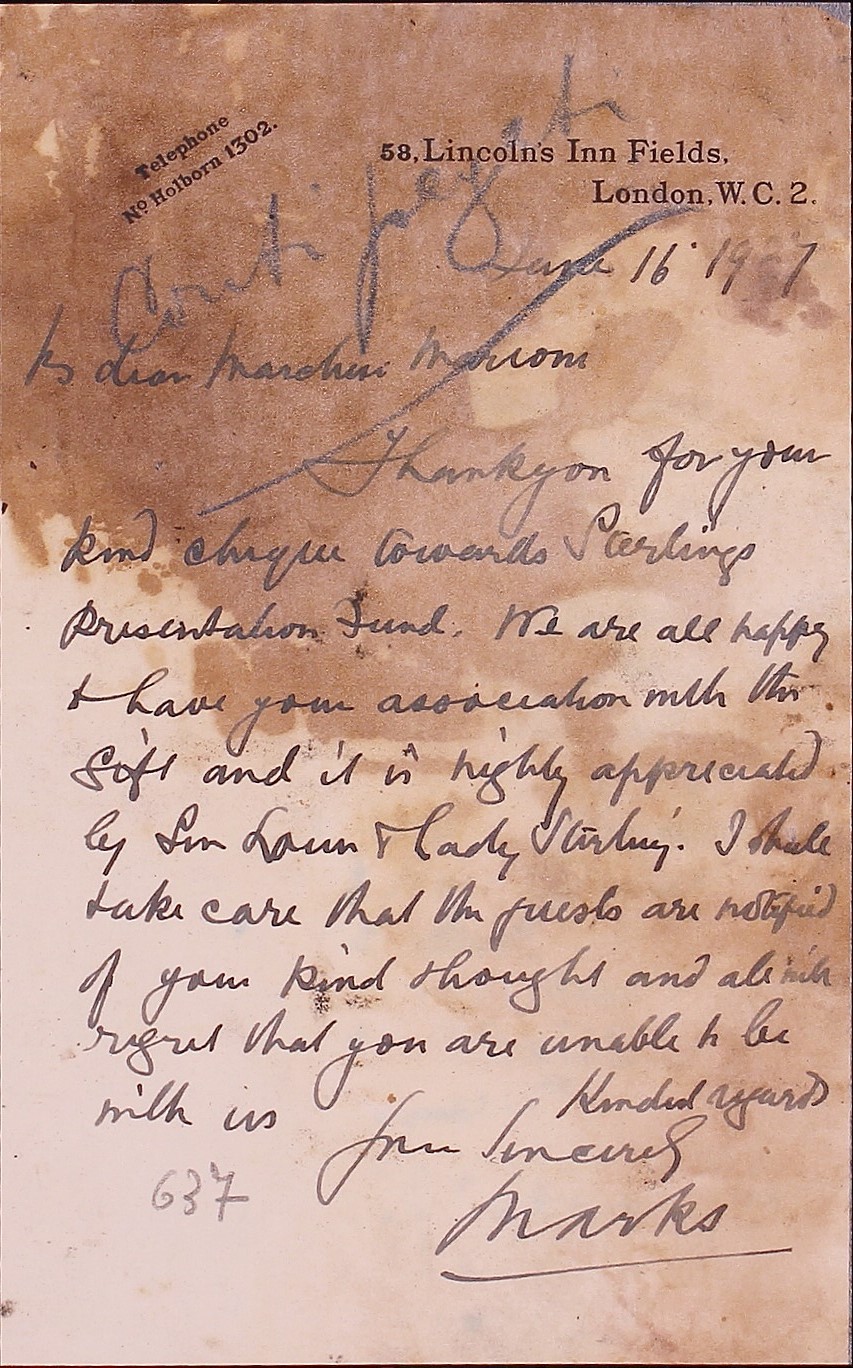 Telephone
No Holborn 1302.
58, Lincoln's Inn Fields,
London, W.C. 2.
June 16 19 7
My dear Marchese Marconi
Thank you for your
kind cheque towards Sterlings
Presentation Fund. We are all happy
to have your association with this
Gift and it is highly appreciated
by Sir Louis & Lady Sterling. I shall
take care that the guests are notified
of your kind thought and all will
regret that you are unable to be
with us Kindest regards
Your Sincerely
Marks
637